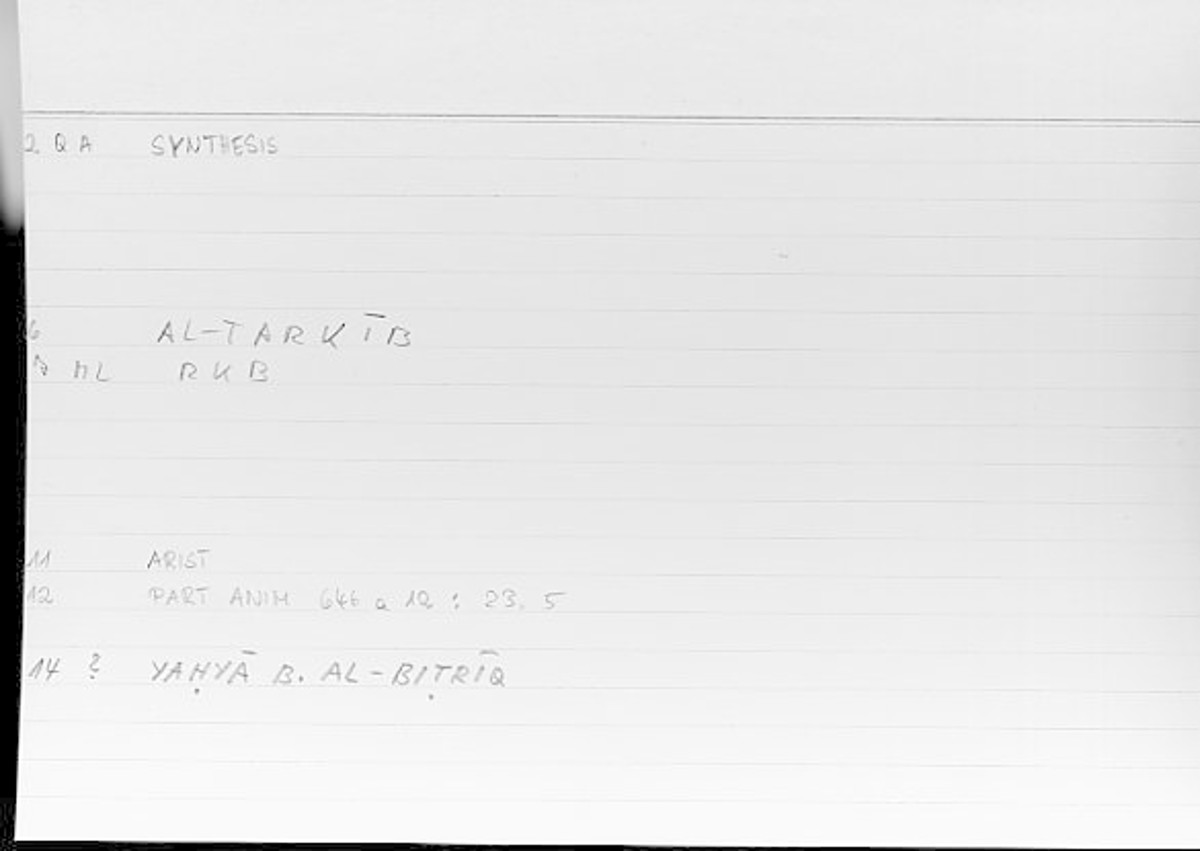 2. QA SYNTHESIS
6 AL-TARKĪB
ML RKB
11 ARIST
12 PART ANIM 646 a 12 : 23. 5
14 ? YAḤYĀ B. AL-BIṬRĪQ